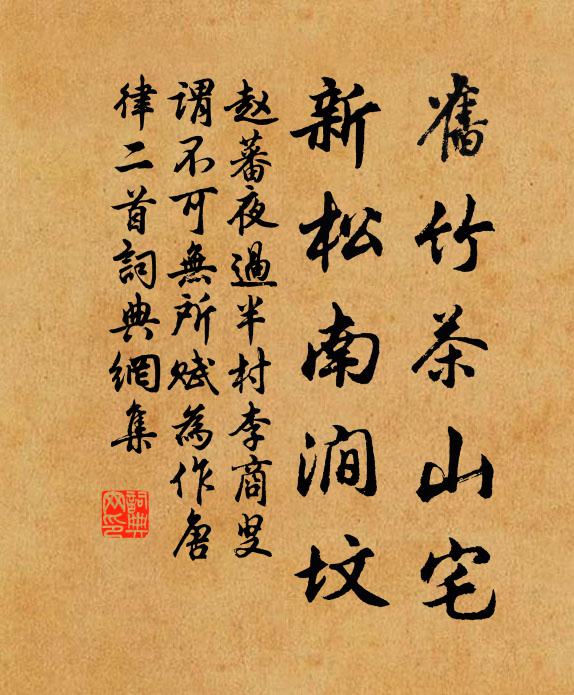 舊竹茶山宅
新松南澗墳
赵蕃夜過半村李商叟
謂不可無所賦為作唐
律二首詞典網集
詞典網印